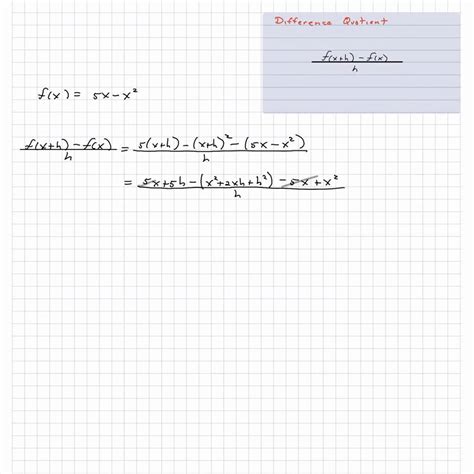 Difference Quotient
f(x+h) - f(x) / h
f(x) = 5x - x²
f(x+h) - f(x) / h = 5(x+h) - (x+h)² - (5x - x²) / h
= 5x + 5h - (x² + 2xh + h²) - 5x + x² / h